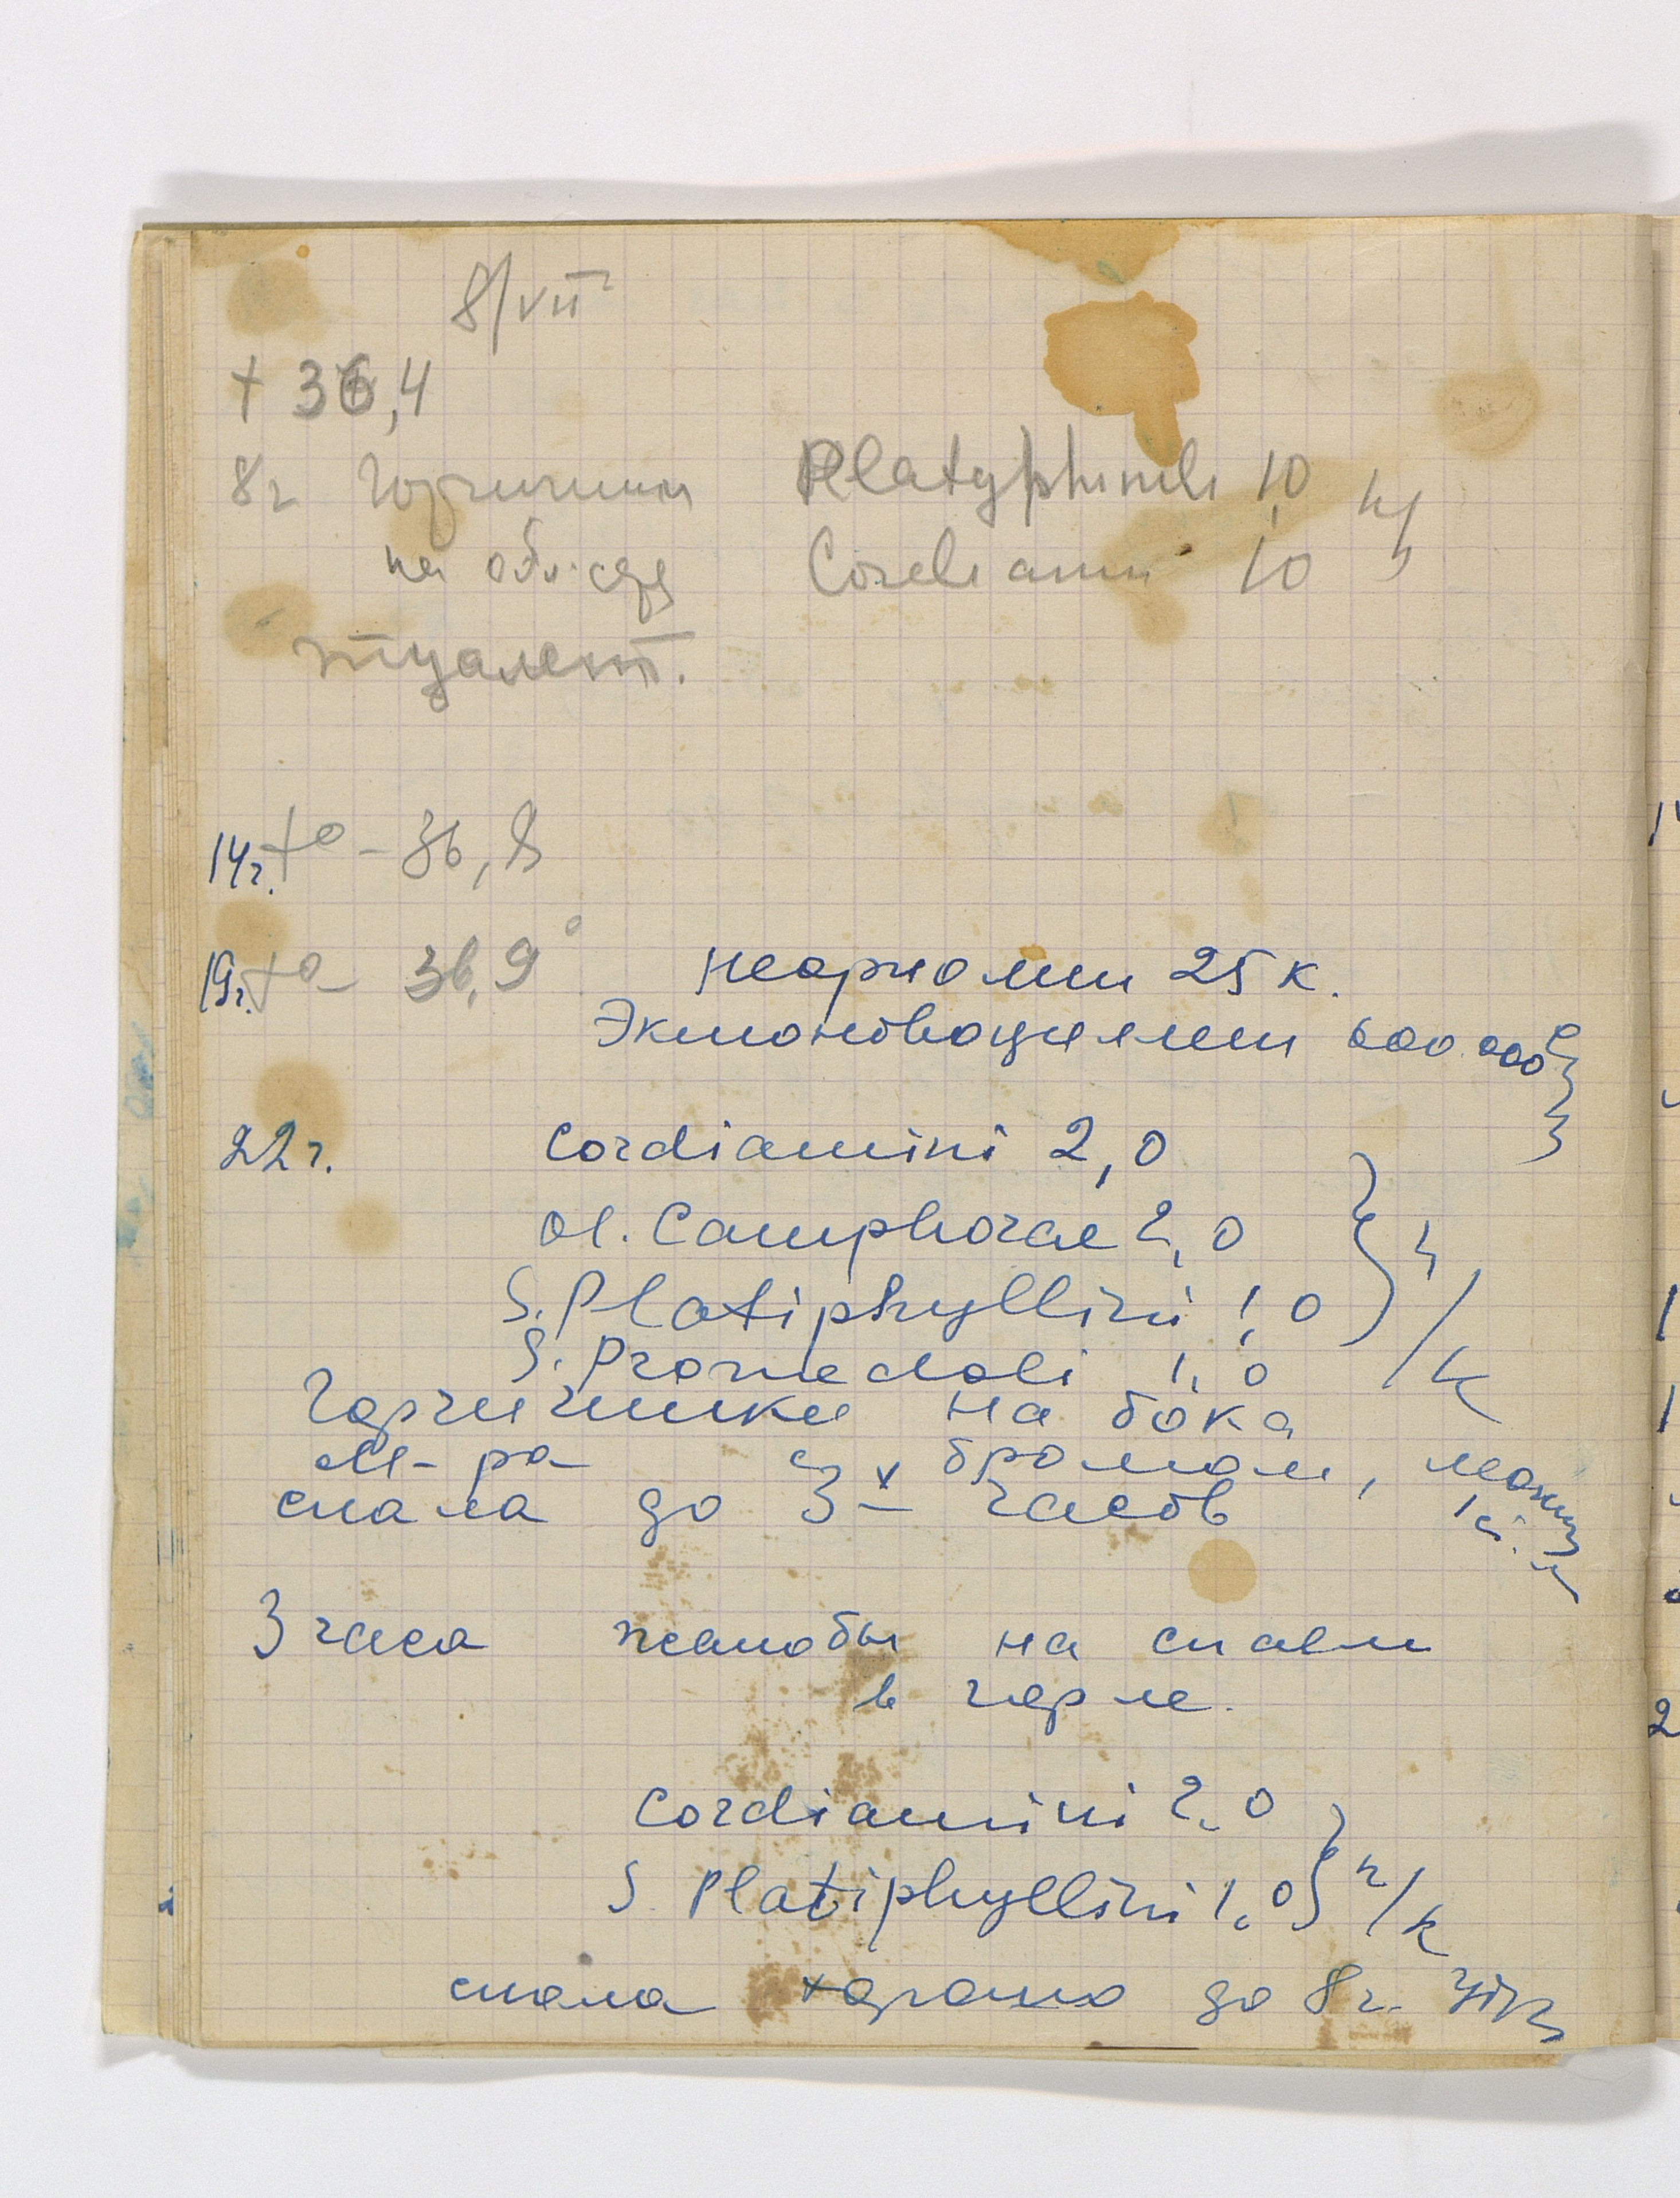 8/VII
t 36,4
8ч Горчичники Platyphinili 1,0 п/
на обл. сердца Cordiamini 1,0
туалет.
14ч. t° – 36,8
19ч. t° – 36,9° неодикумарин 25 к.
Экмоновоциллин 600.000
22ч. Cordiamini 2,0
Ol. Camphorae 2,0 п/к
S. Platiphyllini 1,0
S. Promedoli 1,0
Горчичники на бока
М-ра с бромом,
спала до 3х часов
3 часа жалобы на спазм
в горле.
Cordiamini 2,0
S. Platiphyllini 1,0 п/к
спала хорошо до 8ч. утра